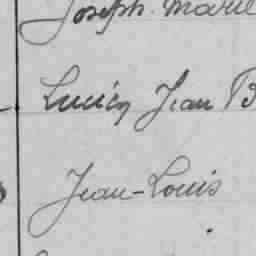 Joseph Marie
Lucien Jean B
Jean-Louis